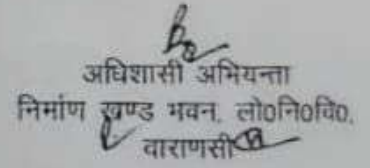 अधिशासी अभियन्ता
निर्माण खण्ड भवन, लो0नि0वि0,
वाराणसी